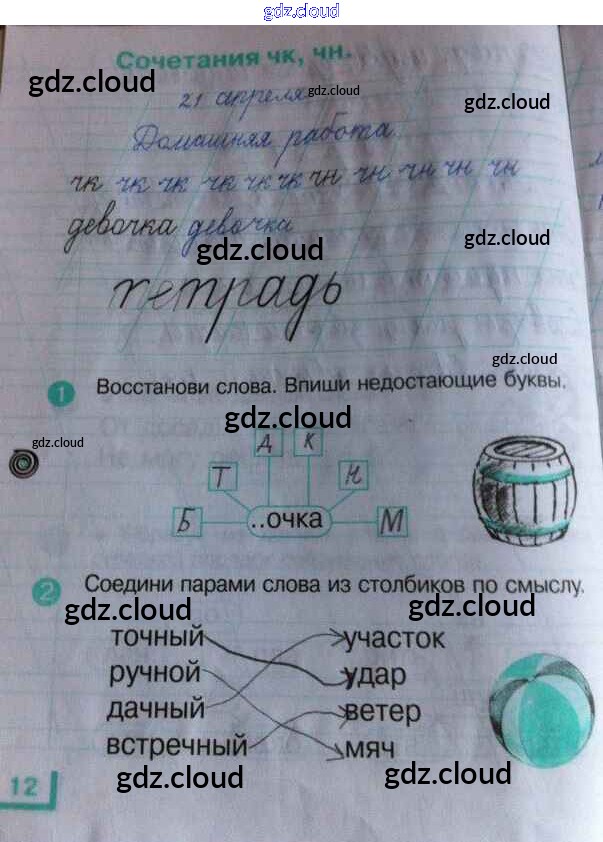 gdz.cloud
Сочетания чк, чн.
gdz.cloud
21 апреля
gdz.cloud
gdz.cloud
Домашняя работа.
чк чк чк чк чк чк чн чн чн чн чн
девочка девочка
gdz.cloud
gdz.cloud
тетрадь
gdz.cloud
1 Восстанови слова. Впиши недостающие буквы.
gdz.cloud
gdz.cloud
Д К
Т Н
Б ..очка М
2 Соедини парами слова из столбиков по смыслу.
gdz.cloud gdz.cloud
точный участок
ручной удар
дачный ветер
встречный мяч
gdz.cloud gdz.cloud
12